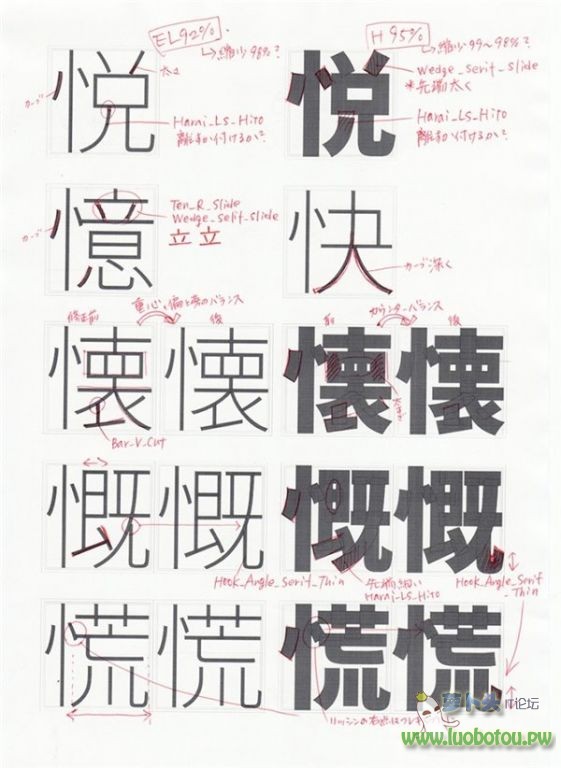 EL92%
↳縮少98%?
H 95%
↳縮少99〜98%?
悦
太く
カーブ
Harai_LS_Hito
離すか付けるか?
悦
Wedge_Serif_Slide
*先端太く
Harai_LS_Hito
離すか付けるか?
憶
カーブ
Ten_R_Slide
Wedge_Serif_Slide
立 立
快
カーブ深く
修正前
重心、偏と旁のバランス
後
懐 懐
Bar_V_Cut
前
カウンターバランス
後
懐 懐
慨 慨
Hook_Angle_Serif_Thin
慨 慨
先端細い
Harai_LS_Hito
Hook_Angle_Serif
_Thin
慌 慌
慌 慌
IT论坛
www.luobotou.pw